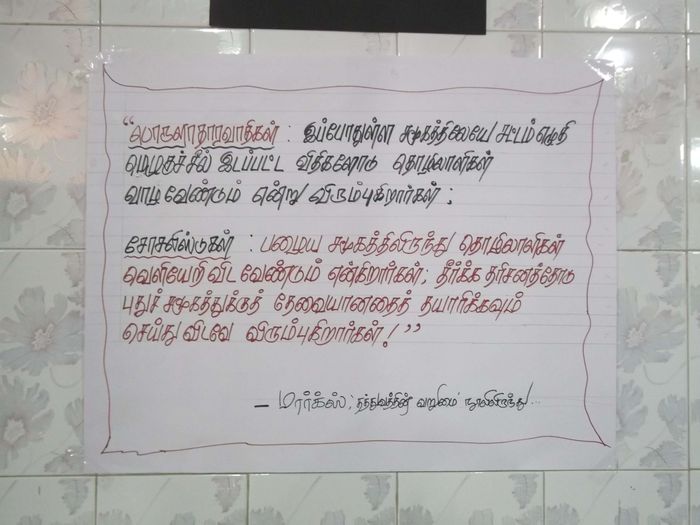 “பொருளாதாரவாதிகள் : இப்போதுள்ள சமூகத்திலேயே சட்டம் எழுதி
மெழுகுச்சீல் இடப்பட்ட விதிகளோடு தொழிலாளிகள்
வாழ வேண்டும் என்று விரும்புகிறார்கள் ;
சோசலிஸ்டுகள் : பழைய சமூகத்திலிருந்து தொழிலாளிகள்
வெளியேறி விட வேண்டும் என்கிறார்கள்; தீர்க்க தரிசனத்தோடு
புதுச் சமூகத்துக்குத் தேவையானதைத் தயாரிக்கவும்
செய்து விடவே விரும்புகிறார்கள் ! ”
– மார்க்ஸ் ; தத்துவத்தின் வறுமை நூலிலிருந்து...